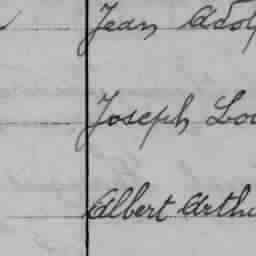 Jean Adol
Joseph Lou
Albert Arthu